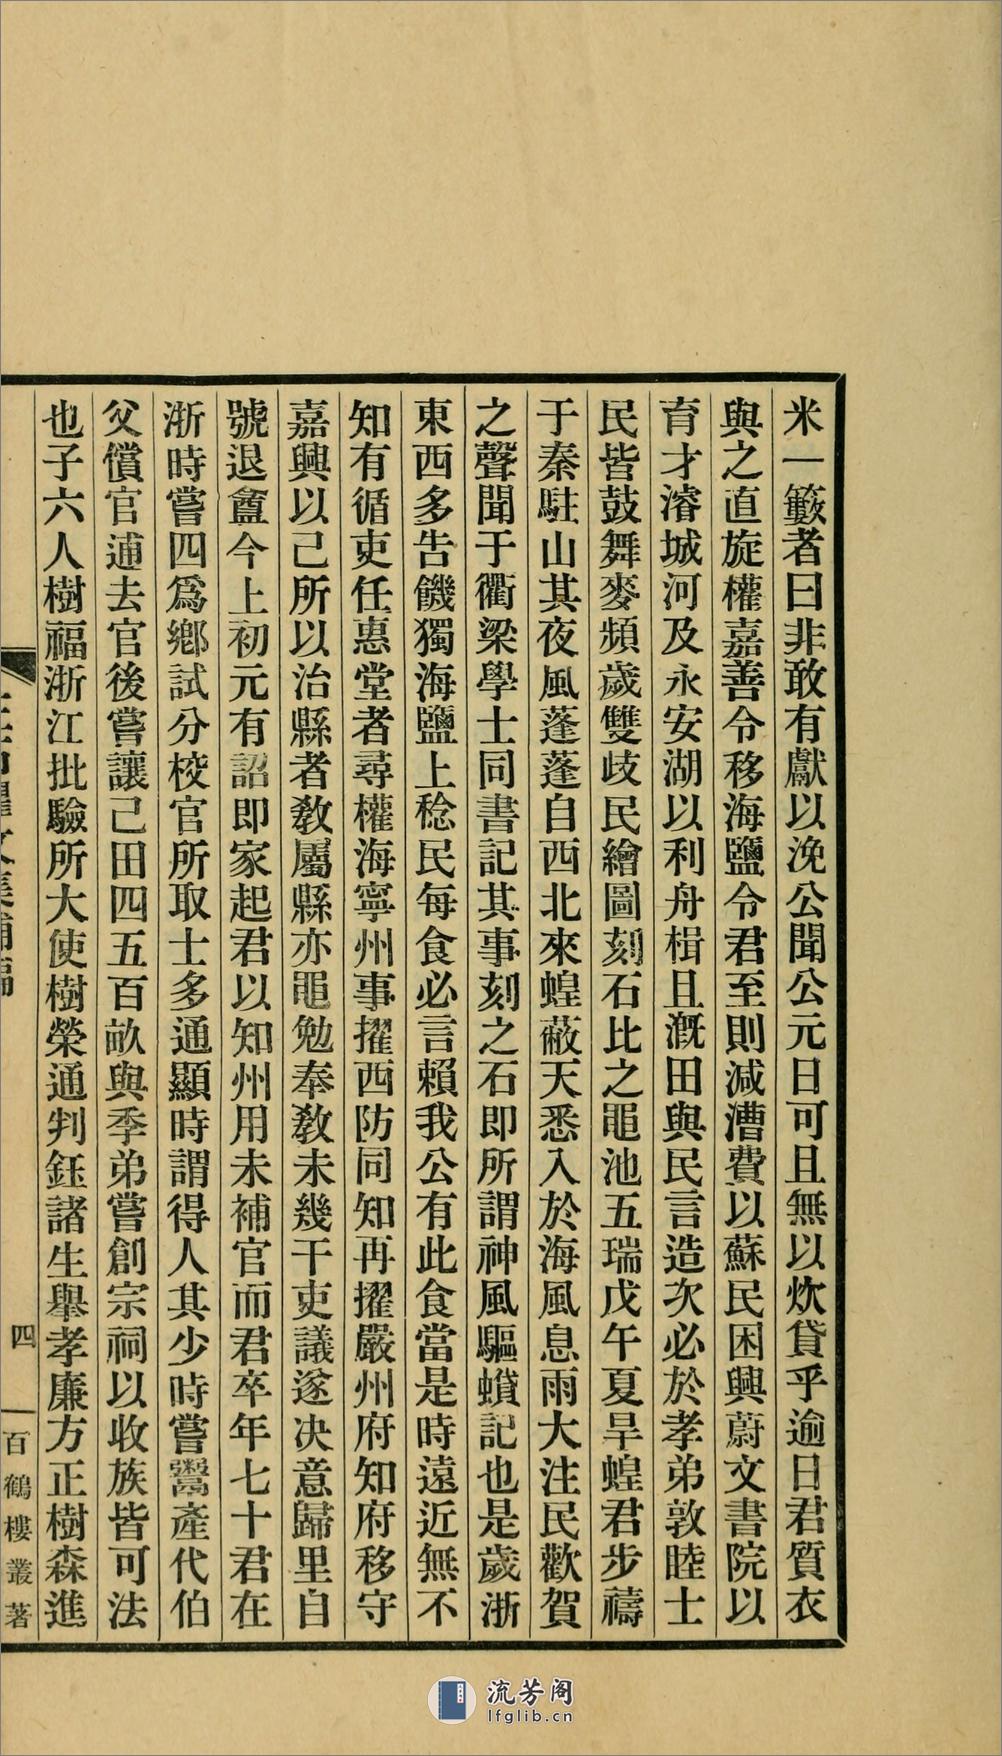 米一籔者曰非敢有獻以浼公聞公元日可且無以炊貸乎逾日君質衣
與之直旋權嘉善令移海鹽令君至則減漕費以蘇民困興蔚文書院以
育才濬城河及永安湖以利舟楫且漑田與民言造次必於孝弟敦睦士
民皆鼓舞麥頻歲雙歧民繪圖刻石比之黽池五瑞戊午夏旱蝗君步禱
于秦駐山其夜風蓬蓬自西北來蝗蔽天悉入於海風息雨大注民歡賀
之聲聞于衢梁學士同書記其事刻之石即所謂神風驅蝗記也是歲浙
東西多告饑獨海鹽上稔民每食必言賴我公有此食當是時遠近無不
知有循吏任惠堂者尋權海寧州事擢西防同知再擢嚴州府知府移守
嘉興以己所以治縣者教屬縣亦黽勉奉教未幾干吏議遂决意歸里自
號退盦今上初元有詔即家起君以知州用未補官而君卒年七十君在
浙時嘗四爲鄉試分校官所取士多通顯時謂得人其少時嘗鬻產代伯
父償官逋去官後嘗讓己田四五百畝與季弟嘗創宗祠以收族皆可法
也子六人樹福浙江批驗所大使樹榮通判鈺諸生舉孝廉方正樹森進
四
百鶴樓叢著
流芳阁
lfglib.cn